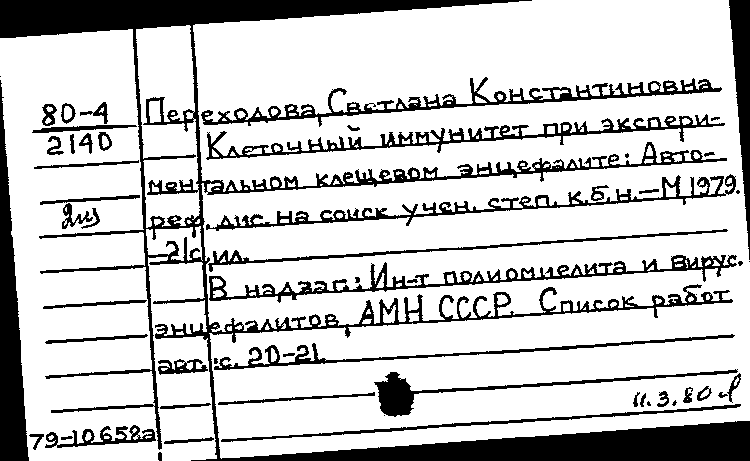 80-4 Переходова, Светлана Константиновна
2140 Клеточный иммунитет при экспери-
ментальном клещевом энцефалите: Авто-
реф. дис. на соиск учен. степ. к.б.н.—М, 1979.
—21с. ил.
В надзаг: Ин-т полиомиелита и вирус.
энцефалитов, АМН СССР. Список работ
авт.: с. 20-21.
11.3.80
79-10658а